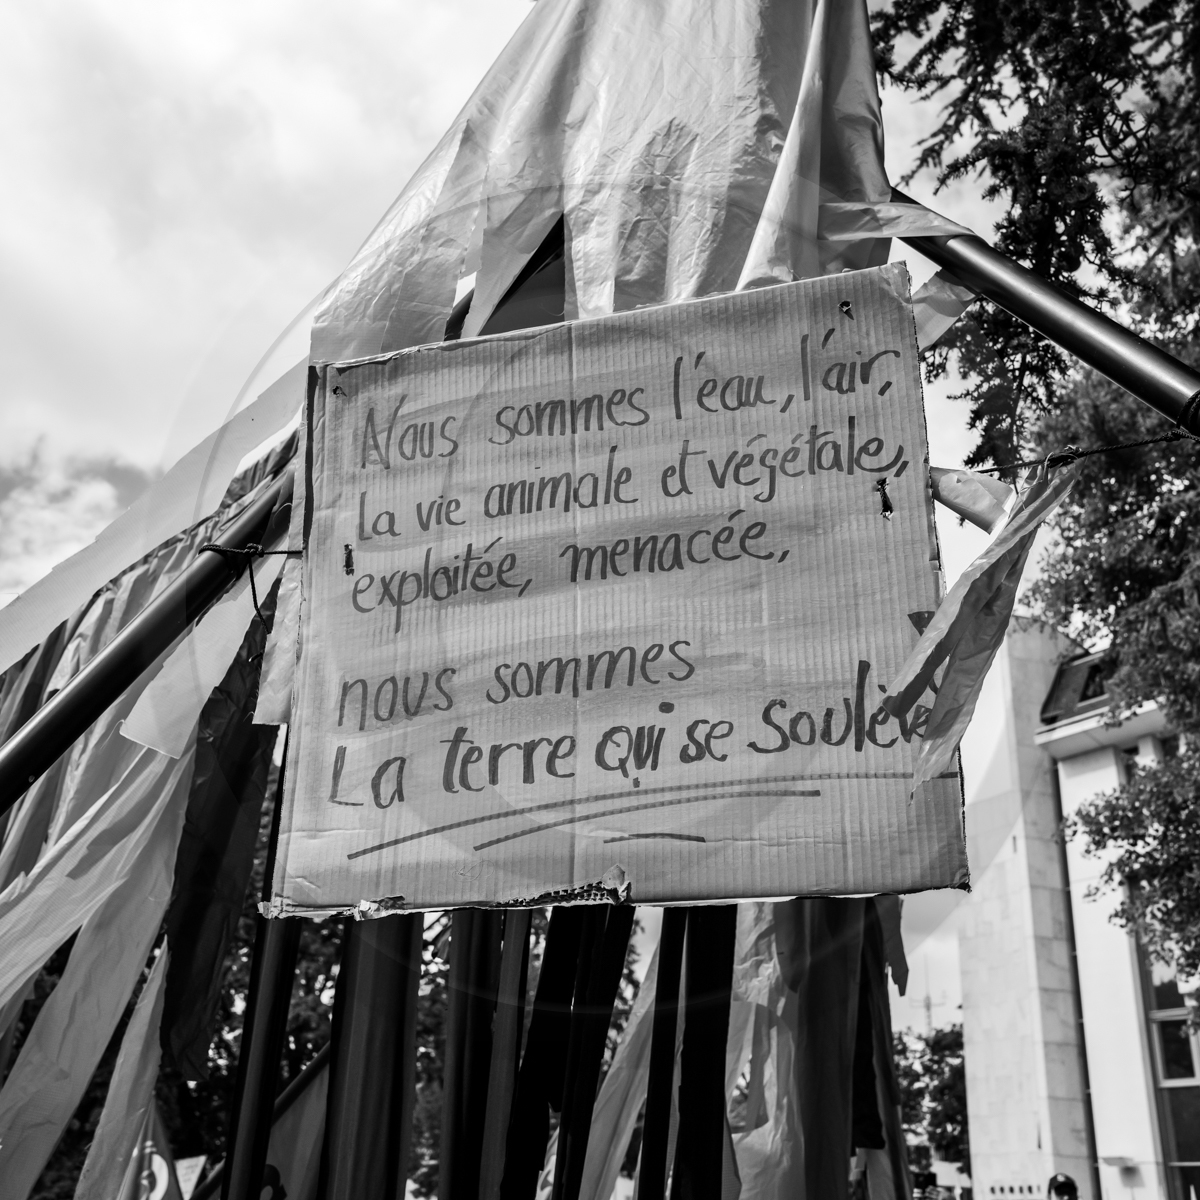 Nous sommes l'eau, l'air,
la vie animale et végétale,
exploitée, menacée,
nous sommes
La terre qui se soulève